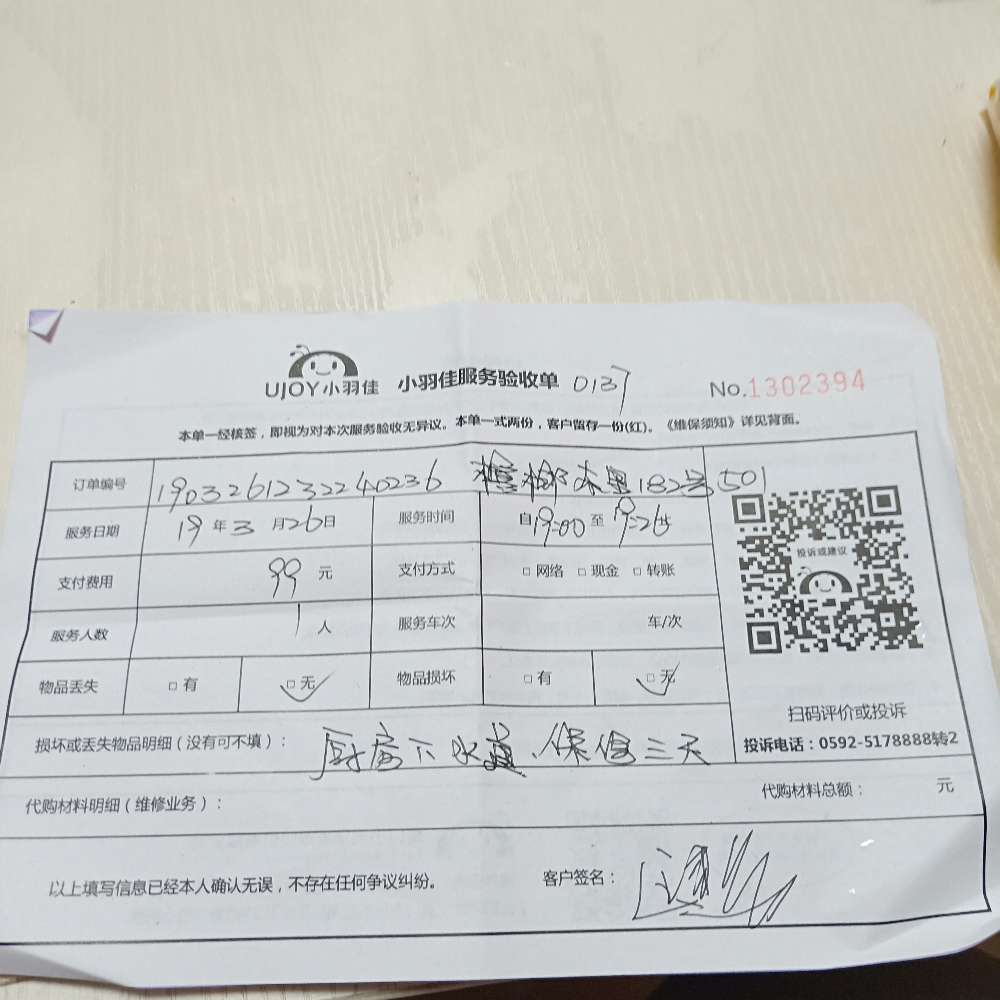 UJOY小羽佳 小羽佳服务验收单 0137 No.1302394
本单一经核签，即视为对本次服务验收无异议。本单一式两份，客户留存一份(红)。《维保须知》详见背面。
订单编号 1903261232240236 182号501
服务日期 19年3月26日 服务时间 自19:00至19:26
支付费用 99元 支付方式 □网络 □现金 □转账
投诉或建议
服务人数 1人 服务车次 车/次
物品丢失 □有 □无 物品损坏 □有 □无
扫码评价或投诉
损坏或丢失物品明细（没有可不填）： 厨房下水道、保修三天
投诉电话：0592-5178888转2
代购材料明细（维修业务）： 代购材料总额： 元
以上填写信息已经本人确认无误，不存在任何争议纠纷。 客户签名：